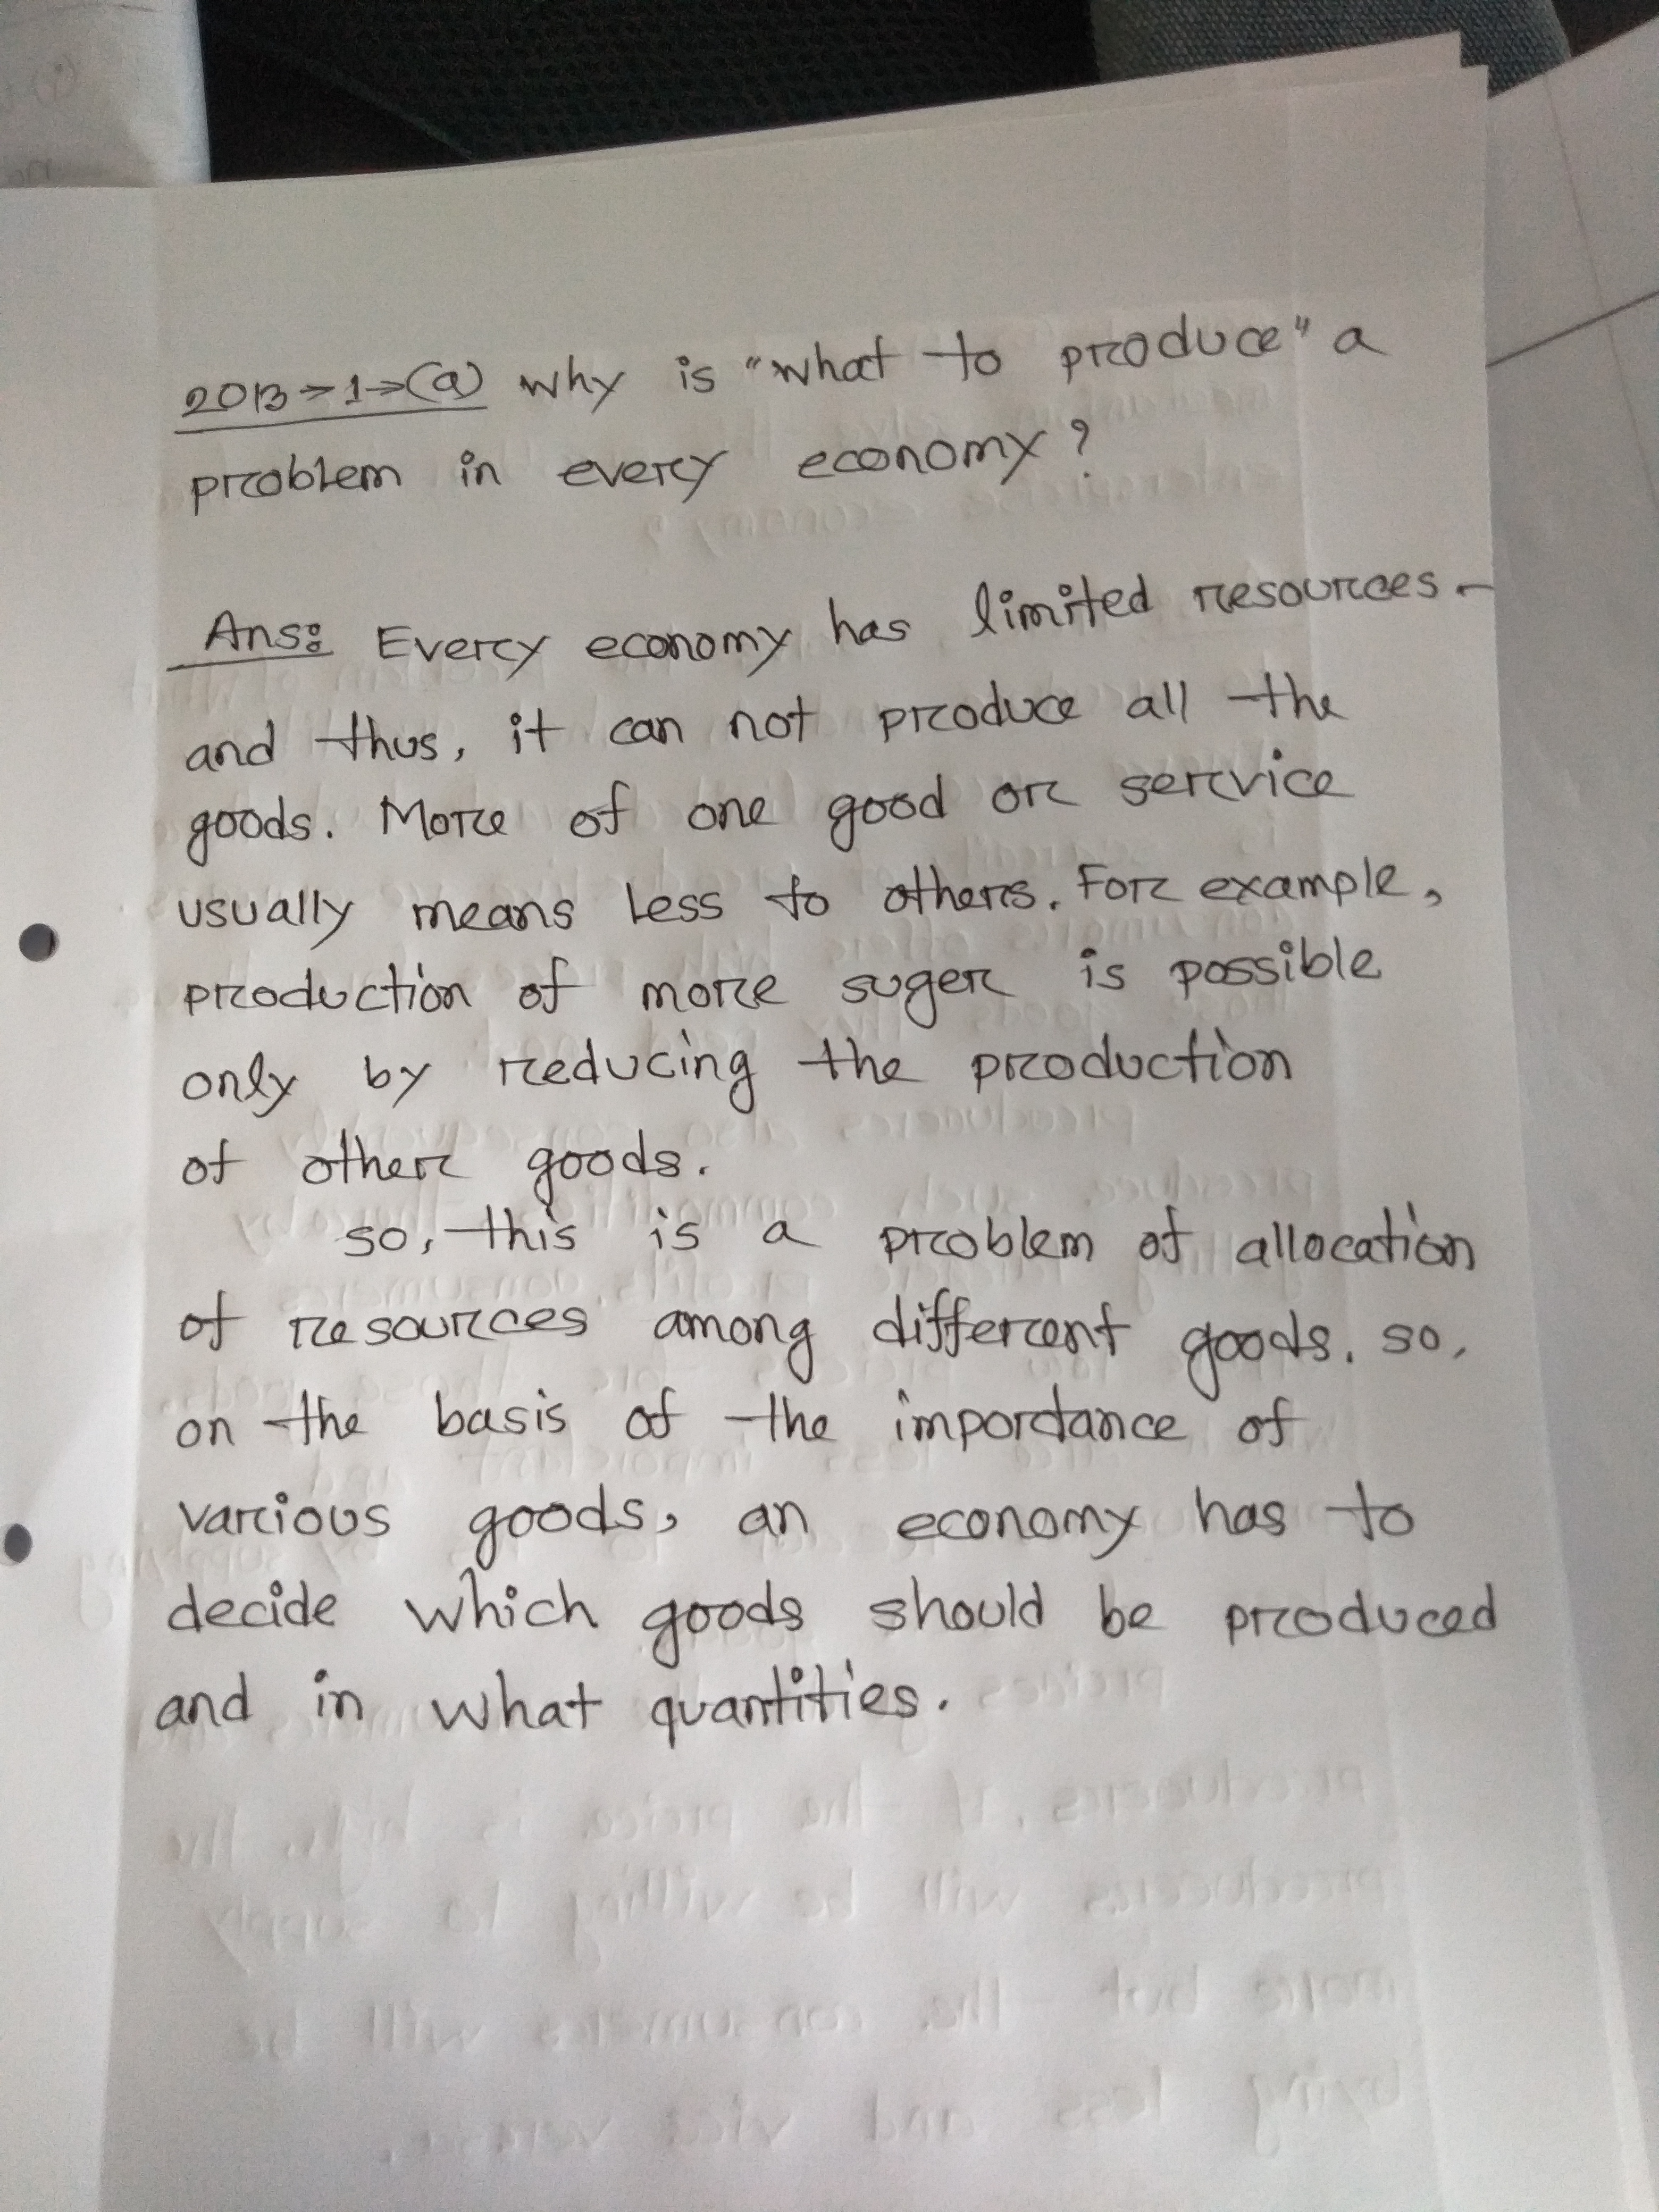 2013→1→(a) Why is "what to produce" a
problem in every economy?
Ans: Every economy has limited resources -
and thus, it can not produce all the
goods. More of one good or service
usually means less to others. For example,
production of more suger is possible
only by reducing the production
of other goods.
so, this is a problem of allocation
of resources among different goods. so,
on the basis of the importance of
various goods, an economy has to
decide which goods should be produced
and in what quantities.